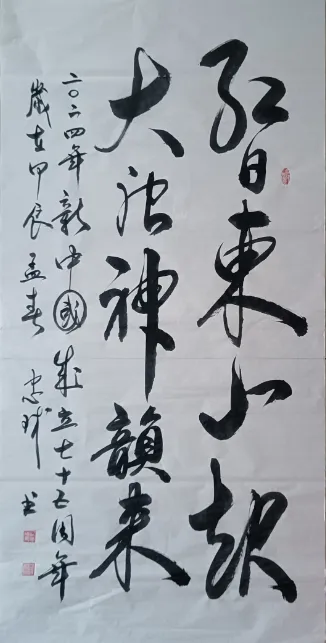 紅日東山起
大神韻来
二〇二四年新中國成立七十五周年
歲在甲辰孟春 忠球 书